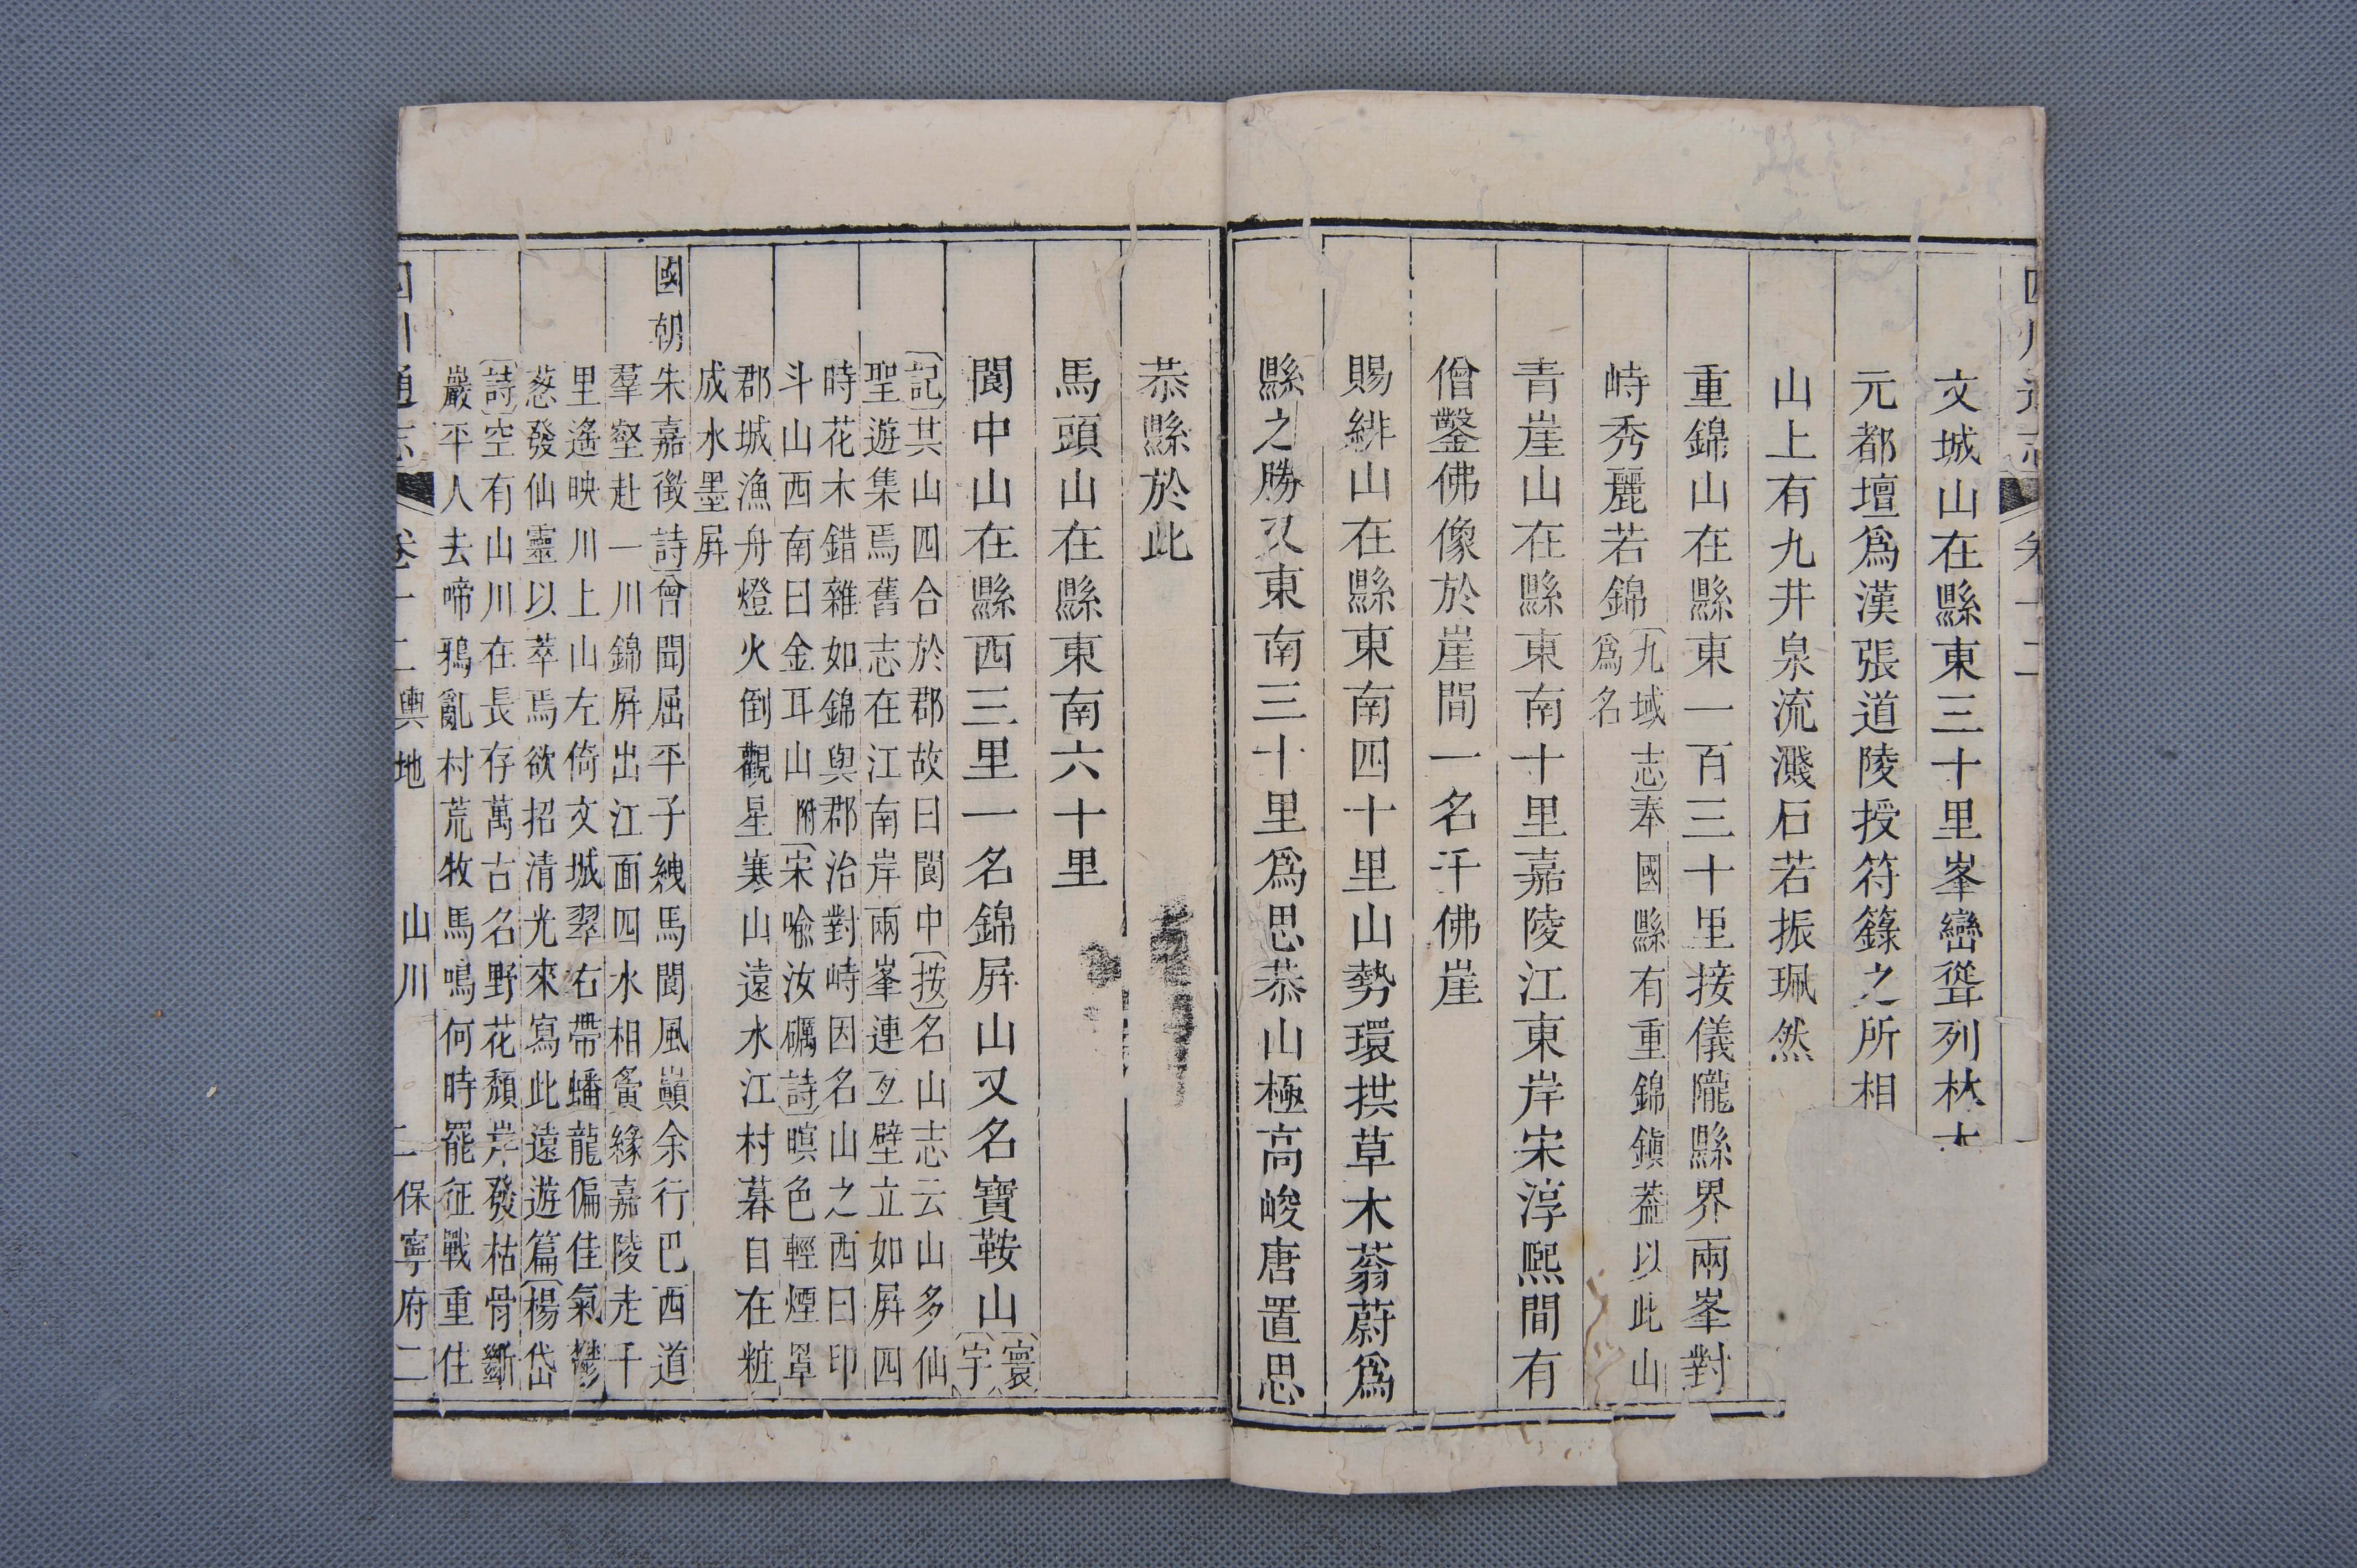 四川通志 卷十二
文城山在縣東三十里峯巒聳列林木
元都壇爲漢張道陵授符籙之所相
山上有九井泉流濺石若振珮然
重錦山在縣東一百三十里接儀隴縣界兩峯對
峙秀麗若錦九域志奉國縣有重錦鎮葢以此山
爲名
青崖山在縣東南十里嘉陵江東岸宋淳熙間有
僧鑿佛像於崖間一名千佛崖
賜緋山在縣東南四十里山勢環拱草木蓊蔚爲
縣之勝又東南三十里爲思恭山極高峻唐置思
恭縣於此
馬頭山在縣東南六十里
閬中山在縣西三里一名錦屛山又名寶鞍山寰
宇
記其山四合於郡故曰閬中按名山志云山多仙
聖遊集焉舊志在江南岸兩峯連亙壁立如屛四
時花木錯雜如錦與郡治對峙因名山之西曰印
斗山西南曰金耳山附宋喩汝礪詩暝色輕煙罩
郡城漁舟燈火倒觀星寒山遠水江村暮自在粧
成水墨屛
國朝朱嘉徵詩曾聞屈平子緤馬閬風巓余行巴西道
羣壑赴一川錦屛出江面四水相夤緣嘉陵走千
里遙映川上山左倚文城翠右帶蟠龍偏佳氣鬱
葱發仙靈以萃焉欲招清光來寫此遠遊篇楊岱
詩空有山川在長存萬古名野花頹岸發枯骨斷
巖平人去啼鴉亂村荒牧馬鳴何時罷征戰重住
四川通志 卷十二輿地 山川 二保寧府二